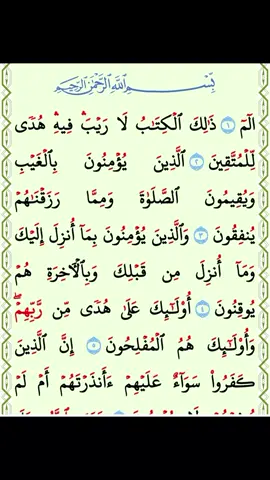 بِسْمِ اللَّهِ الرَّحْمَٰنِ الرَّحِيمِ
الٓمٓ ١ ذَٰلِكَ الْكِتَٰبُ لَا رَيْبَ ۛ فِيهِ ۛ هُدًى
لِّلْمُتَّقِينَ ٢ الَّذِينَ يُؤْمِنُونَ بِالْغَيْبِ
وَيُقِيمُونَ الصَّلَوٰةَ وَمِمَّا رَزَقْنَٰهُمْ
يُنفِقُونَ ٣ وَالَّذِينَ يُؤْمِنُونَ بِمَآ أُنزِلَ إِلَيْكَ
وَمَآ أُنزِلَ مِن قَبْلِكَ وَبِالْءَاخِرَةِ هُمْ
يُوقِنُونَ ٤ أُو۟لَٰٓئِكَ عَلَىٰ هُدًى مِّن رَّبِّهِمْ ۖ
وَأُو۟لَٰٓئِكَ هُمُ الْمُفْلِحُونَ ٥ إِنَّ الَّذِينَ
كَفَرُوا۟ سَوَآءٌ عَلَيْهِمْ ءَأَنذَرْتَهُمْ أَمْ لَمْ